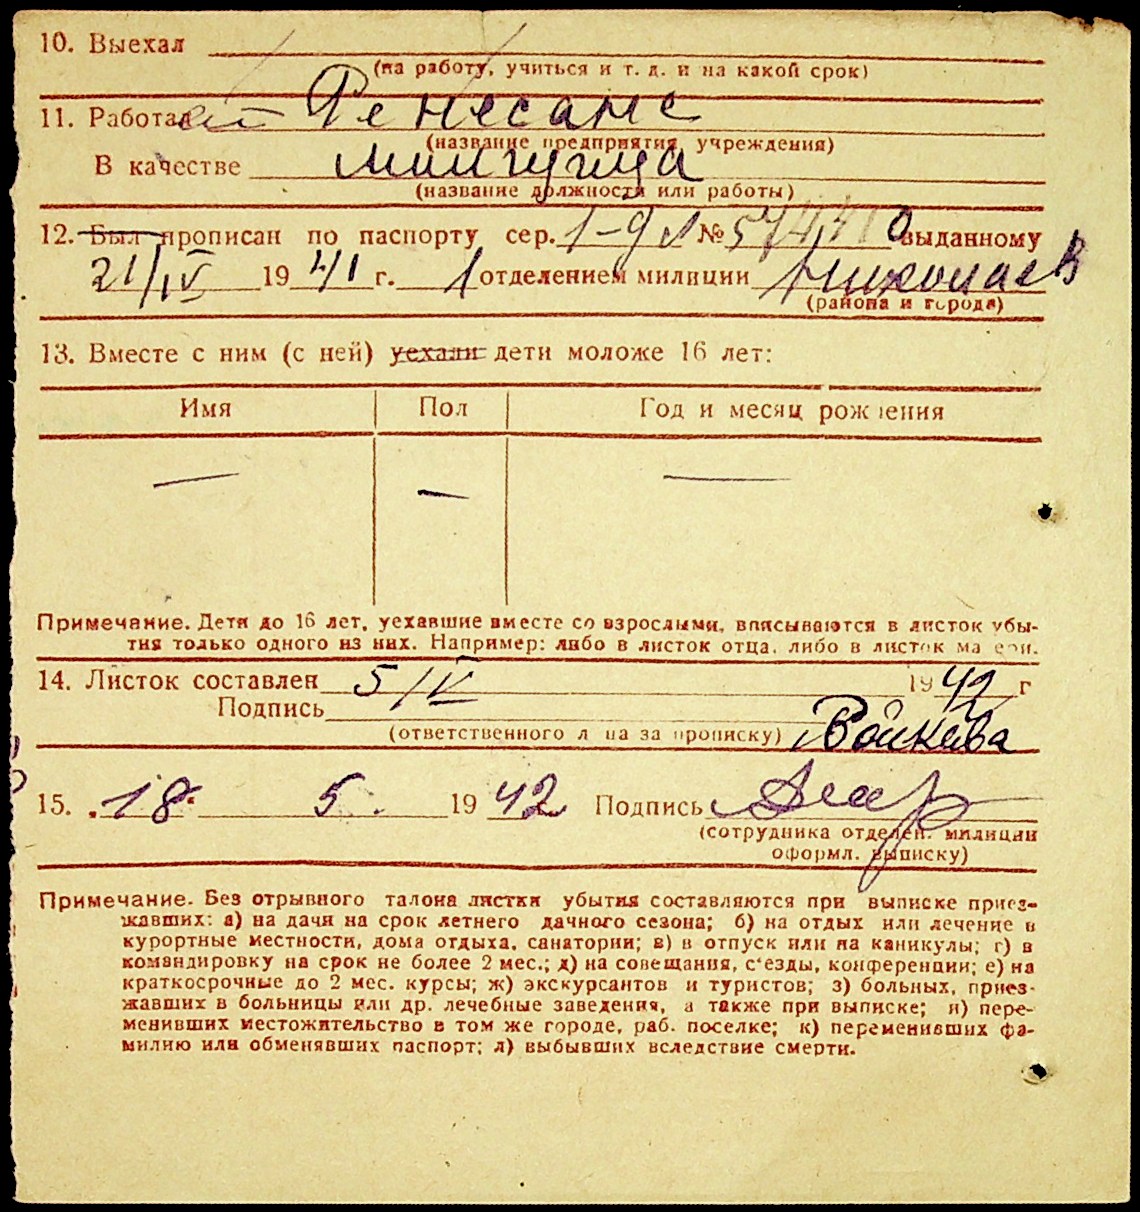 10. Выехал
(на работу, учиться и т. д. и на какой срок)
11. Работал Ренесанс
(название предприятия, учреждения)
В качестве
(название должности или работы)
12. Был прописан по паспорту сер. № выданному
21/IV 1941 г. 1 отделением милиции Николаев
(района и города)
13. Вместе с ним (с ней) уехали дети моложе 16 лет:
Имя Пол Год и месяц рождения
— — —
Примечание. Дети до 16 лет, уехавшие вместе со взрослыми, вписываются в листок убы-
тия только одного из них. Например: либо в листок отца, либо в листок матери.
14. Листок составлен 5/V 1942 г
Подпись
(ответственного лица за прописку) Войкова
15. 18 5. 1942 Подпись
(сотрудника отделен. милиции
оформл. выписку)
Примечание. Без отрывного талона листки убытия составляются при выписке приез-
жавших: а) на дачи на срок летнего дачного сезона; б) на отдых или лечение в
курортные местности, дома отдыха, санатории; в) в отпуск или на каникулы; г) в
командировку на срок не более 2 мес.; д) на совещания, с‘езды, конференции; е) на
краткосрочные до 2 мес. курсы; ж) экскурсантов и туристов; з) больных, приез-
жавших в больницы или др. лечебные заведения, а также при выписке; и) пере-
менивших местожительство в том же городе, раб. поселке; к) переменивших фа-
милию или обменявших паспорт; л) выбывших вследствие смерти.